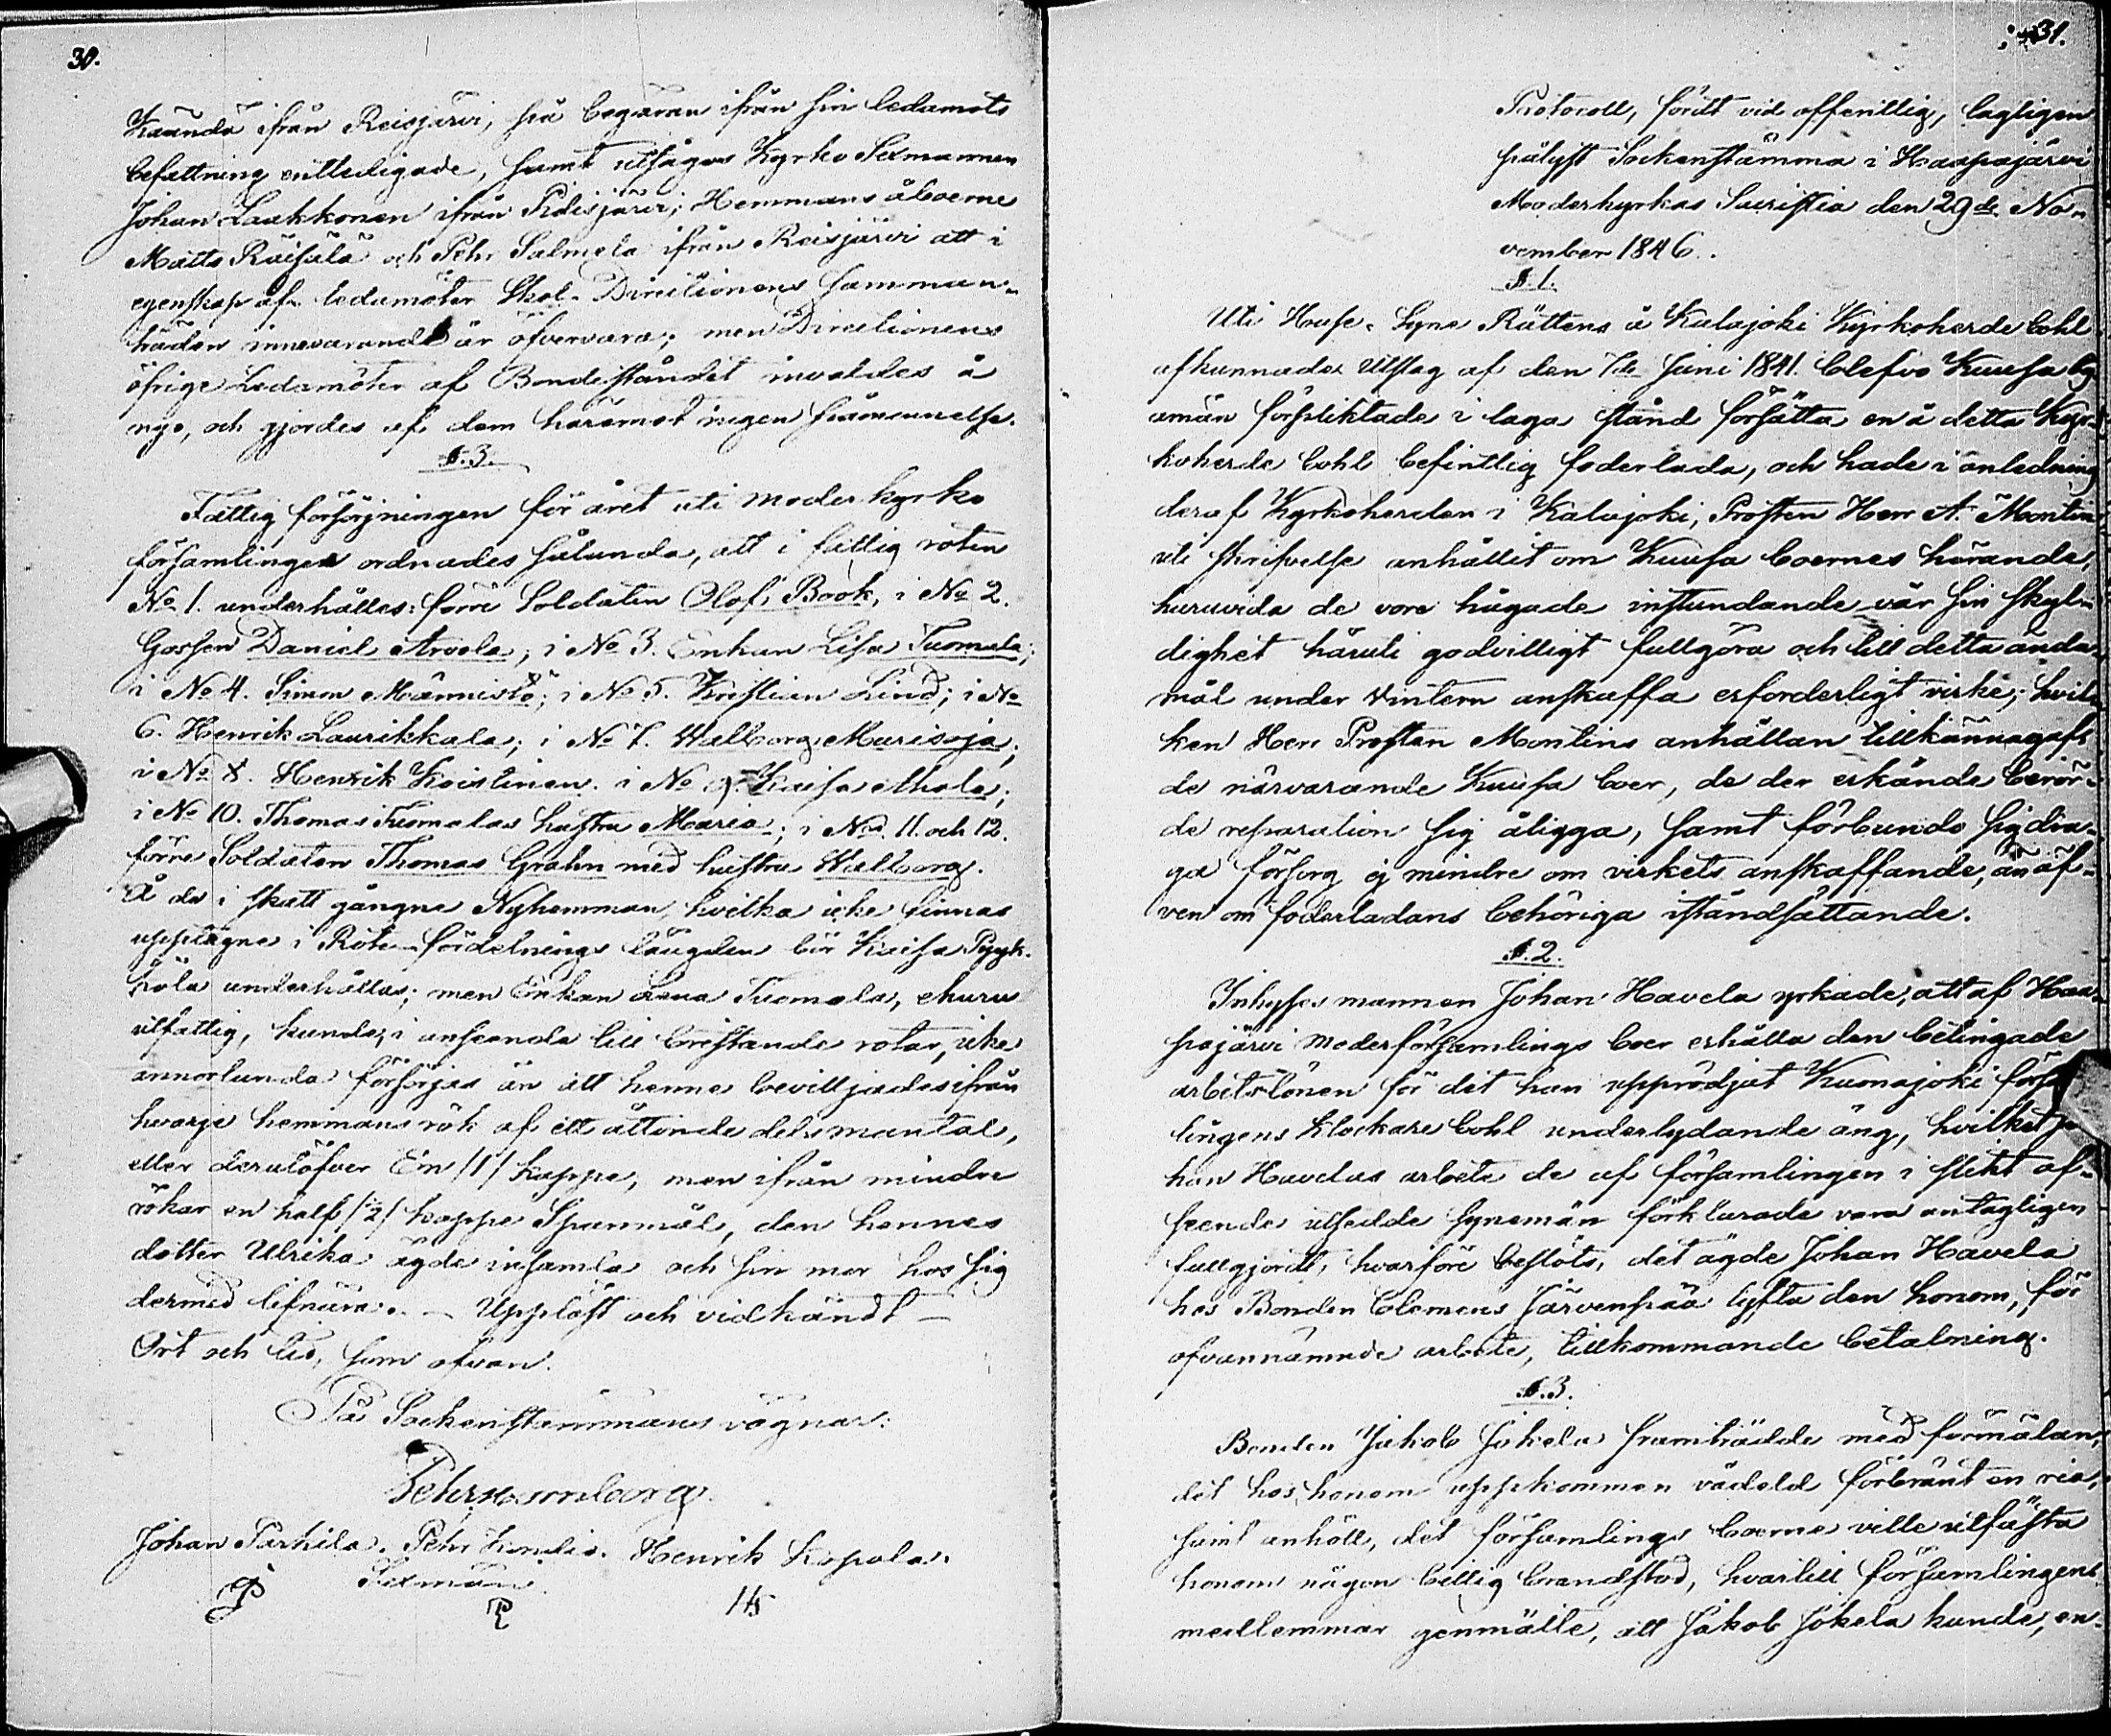 30.
Kaanda ifrån Reisjärvi, på begäran ifrån sin ledamots
befattning entledigade, samt utsågos Kyrko Sexmannen
Johan Laakkonen ifrån Pidisjärvi, Hemmans åboerne
Matts Räisälä och Pehr Salmela ifrån Reisjärvi att i
egenskap af ledamöter Skol-Directionens samman-
träden innevarande år öfvervara; men Directionens
öfrige Ledamöter af Bondeståndet invaldes å
nyo, och gjordes af dem häremot ingen påminnelse.
§.3.
Fattig försörjningen för året uti moderkyrko
församlingen ordnades sålunda, att i fattig roten
No 1. underhålles: förre Soldaten Olof Book, i No 2.
Gossen Daniel Arvola; i No 3. Enkan Lisa Tuomala;
i No 4. Simon Männistö; i No 5. Kristian Lind; i No
6. Henrik Laurikkala; i No 7. Walborg Marisoja;
i No 8. Henrik Koistinen. i No 9. Kaisa Ahola;
i No 10. Thomas Tuomalas hustru Maria; i No. 11. och 12.
förre Soldaten Thomas Grahn med hustru Walborg.
Å de i skatt gångne Nyhemman, hvilka icke finnas
upptagne i Rote-fördelnings längden bör Kaisa Pyyk-
kölä underhållas; men Enkan Lena Tuomala, ehuru
utfattig, kunde, i anseende till bristande rotar, icke
annorlunda försörjas än att henne bevilljades ifrån
hvarje hemmans rök af ett åttonde dels mantal,
eller derutöfver En /1/ kappe, men ifrån mindre
rökar en half /½/ kappe Spanmål, den hennes
dotter Ulrika ägde insamla och sin mor hos sig
dermed lifnära. - Uppläst och vidkändt -
Ort och tid, som ofvan.
På Sockenstämmans vägnar:
Johan Parkila. Pehr Henrik Kopola.
Sexmän

31.
Protocoll, fördt vid offentlig, lagligen
pålyst Sockenstämma i Haapajärvi
Moderkyrkas Sacristia den 29de No-
vember 1846.
§.1.
Uti Huse-Syne Rättens å Kalajoki Kyrkoherde bohl
afkunnades Utslag af den 7de Juni 1841. blefvo Kuusa by
amän förpliktade i laga stånd försätta en å detta Kyr-
koherde bohl befintlig foderlada, och hade i anledning
deraf Kyrkoherden i Kalajoki, Prosten Herr A. Montin
uti skrifvelse anhållit om Kuusa boernes hörande,
huruvida de vore hågade instundande vår sin skyl-
dighet häruti godvilligt fullgöra och till detta ända-
mål under vintern anskaffa erforderligt virke; hvil-
ken Herr Prosten Montins anhållan tillkännagafs
de närvarande Kuusa boer, de der erkände berör-
de reparation sig åligga, samt förbundo sig dra-
ga försorg ej mindre om virkets anskaffande, än äf-
ven om foderladans behöriga iståndsättande.
§.2.
Inhyses mannen Johan Havela yrkade, att af Haa-
pajärvi moderförsamlings boer erhålla den betingade
arbetslönen för det han upprödjat Kuonajoki förs
lingens Klockare bohl underlydande äng, hvilket
han Havelas arbete de af församlingen i slikt af-
seende utsedde synemän förklarade vara antagligen
fullgjordt, hvarföre beslöts, det ägde Johan Havela
hos Bonden Clemens Järvenpää lyfta den honom, för
ofvannämnde arbete, tillkommande betalning.
§.3.
Bonden Jakob Jokela framträdde med förmälan,
det hos honom uppkommen vådeld förbränt en ria,
samt anhöll, det församlings boerne ville utfästa
honom någon billig brandstod, hvartill församlingens
medlemmar genmälte, att Jakob Jokela kunde, en-